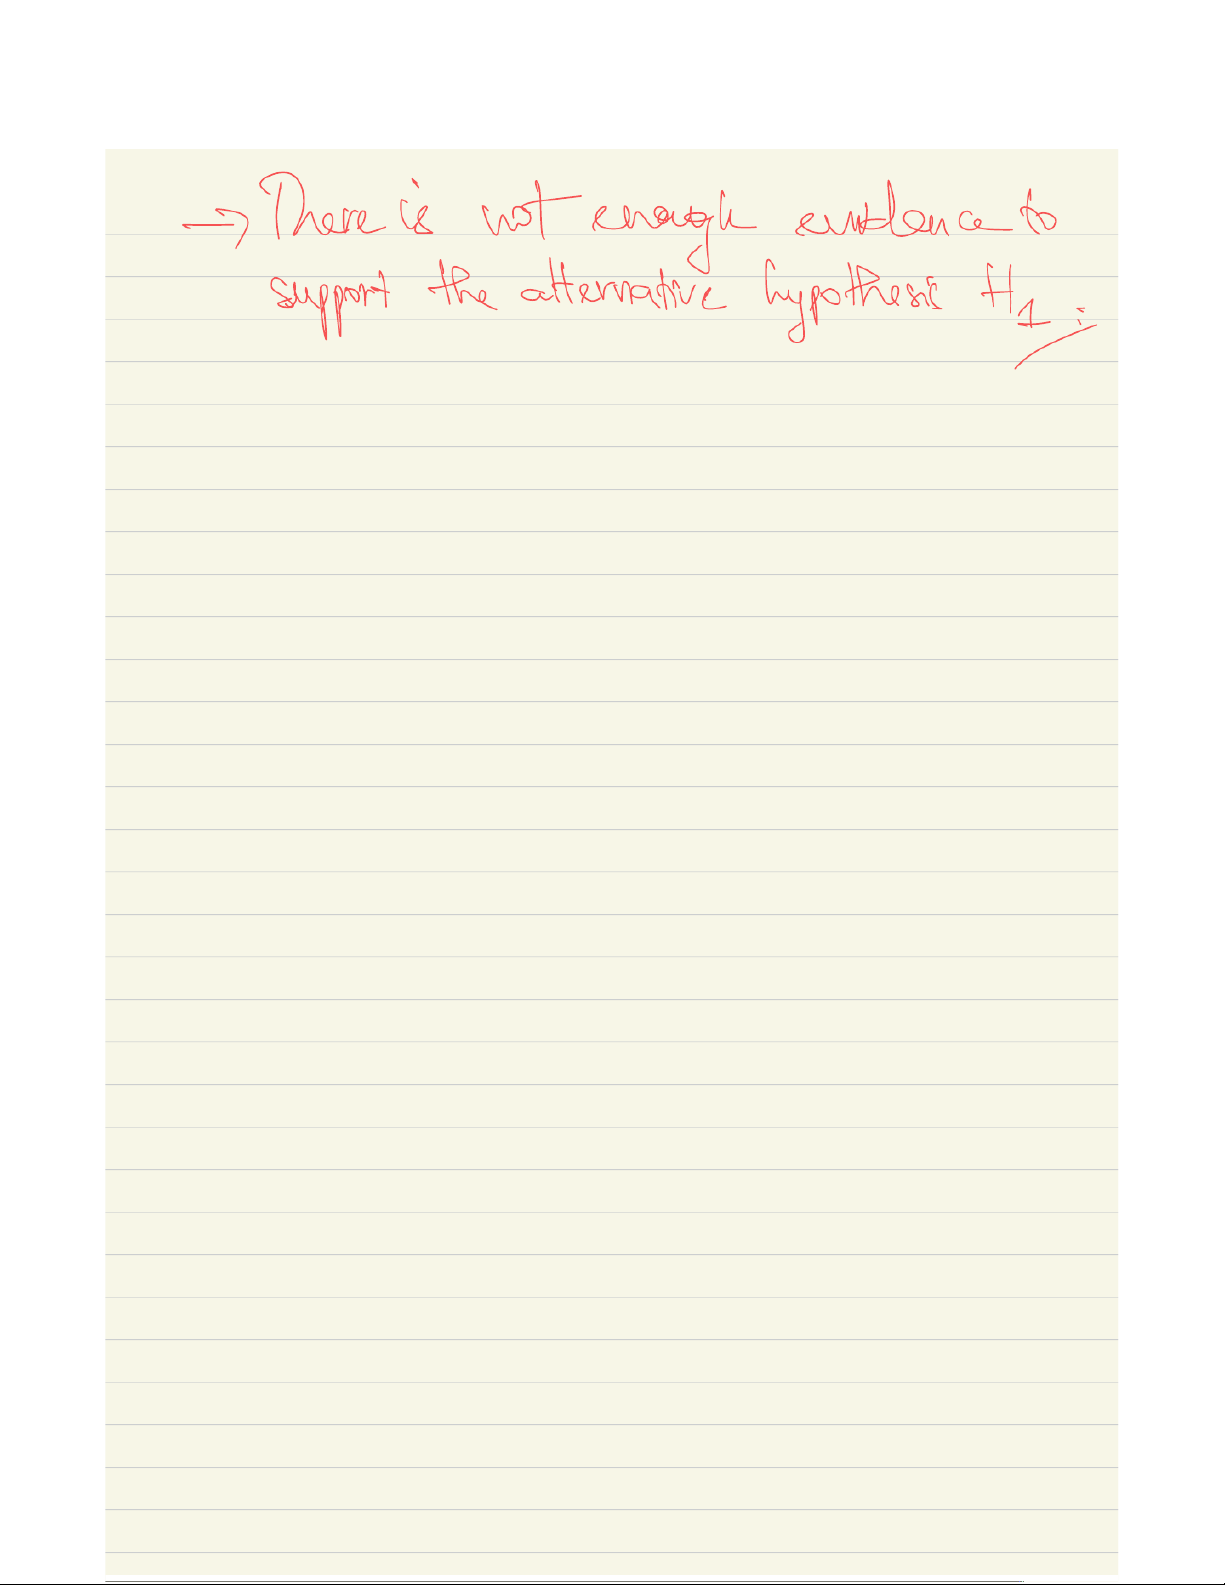 → There is not enough evidence to
support the alternative hypothesis H₁.